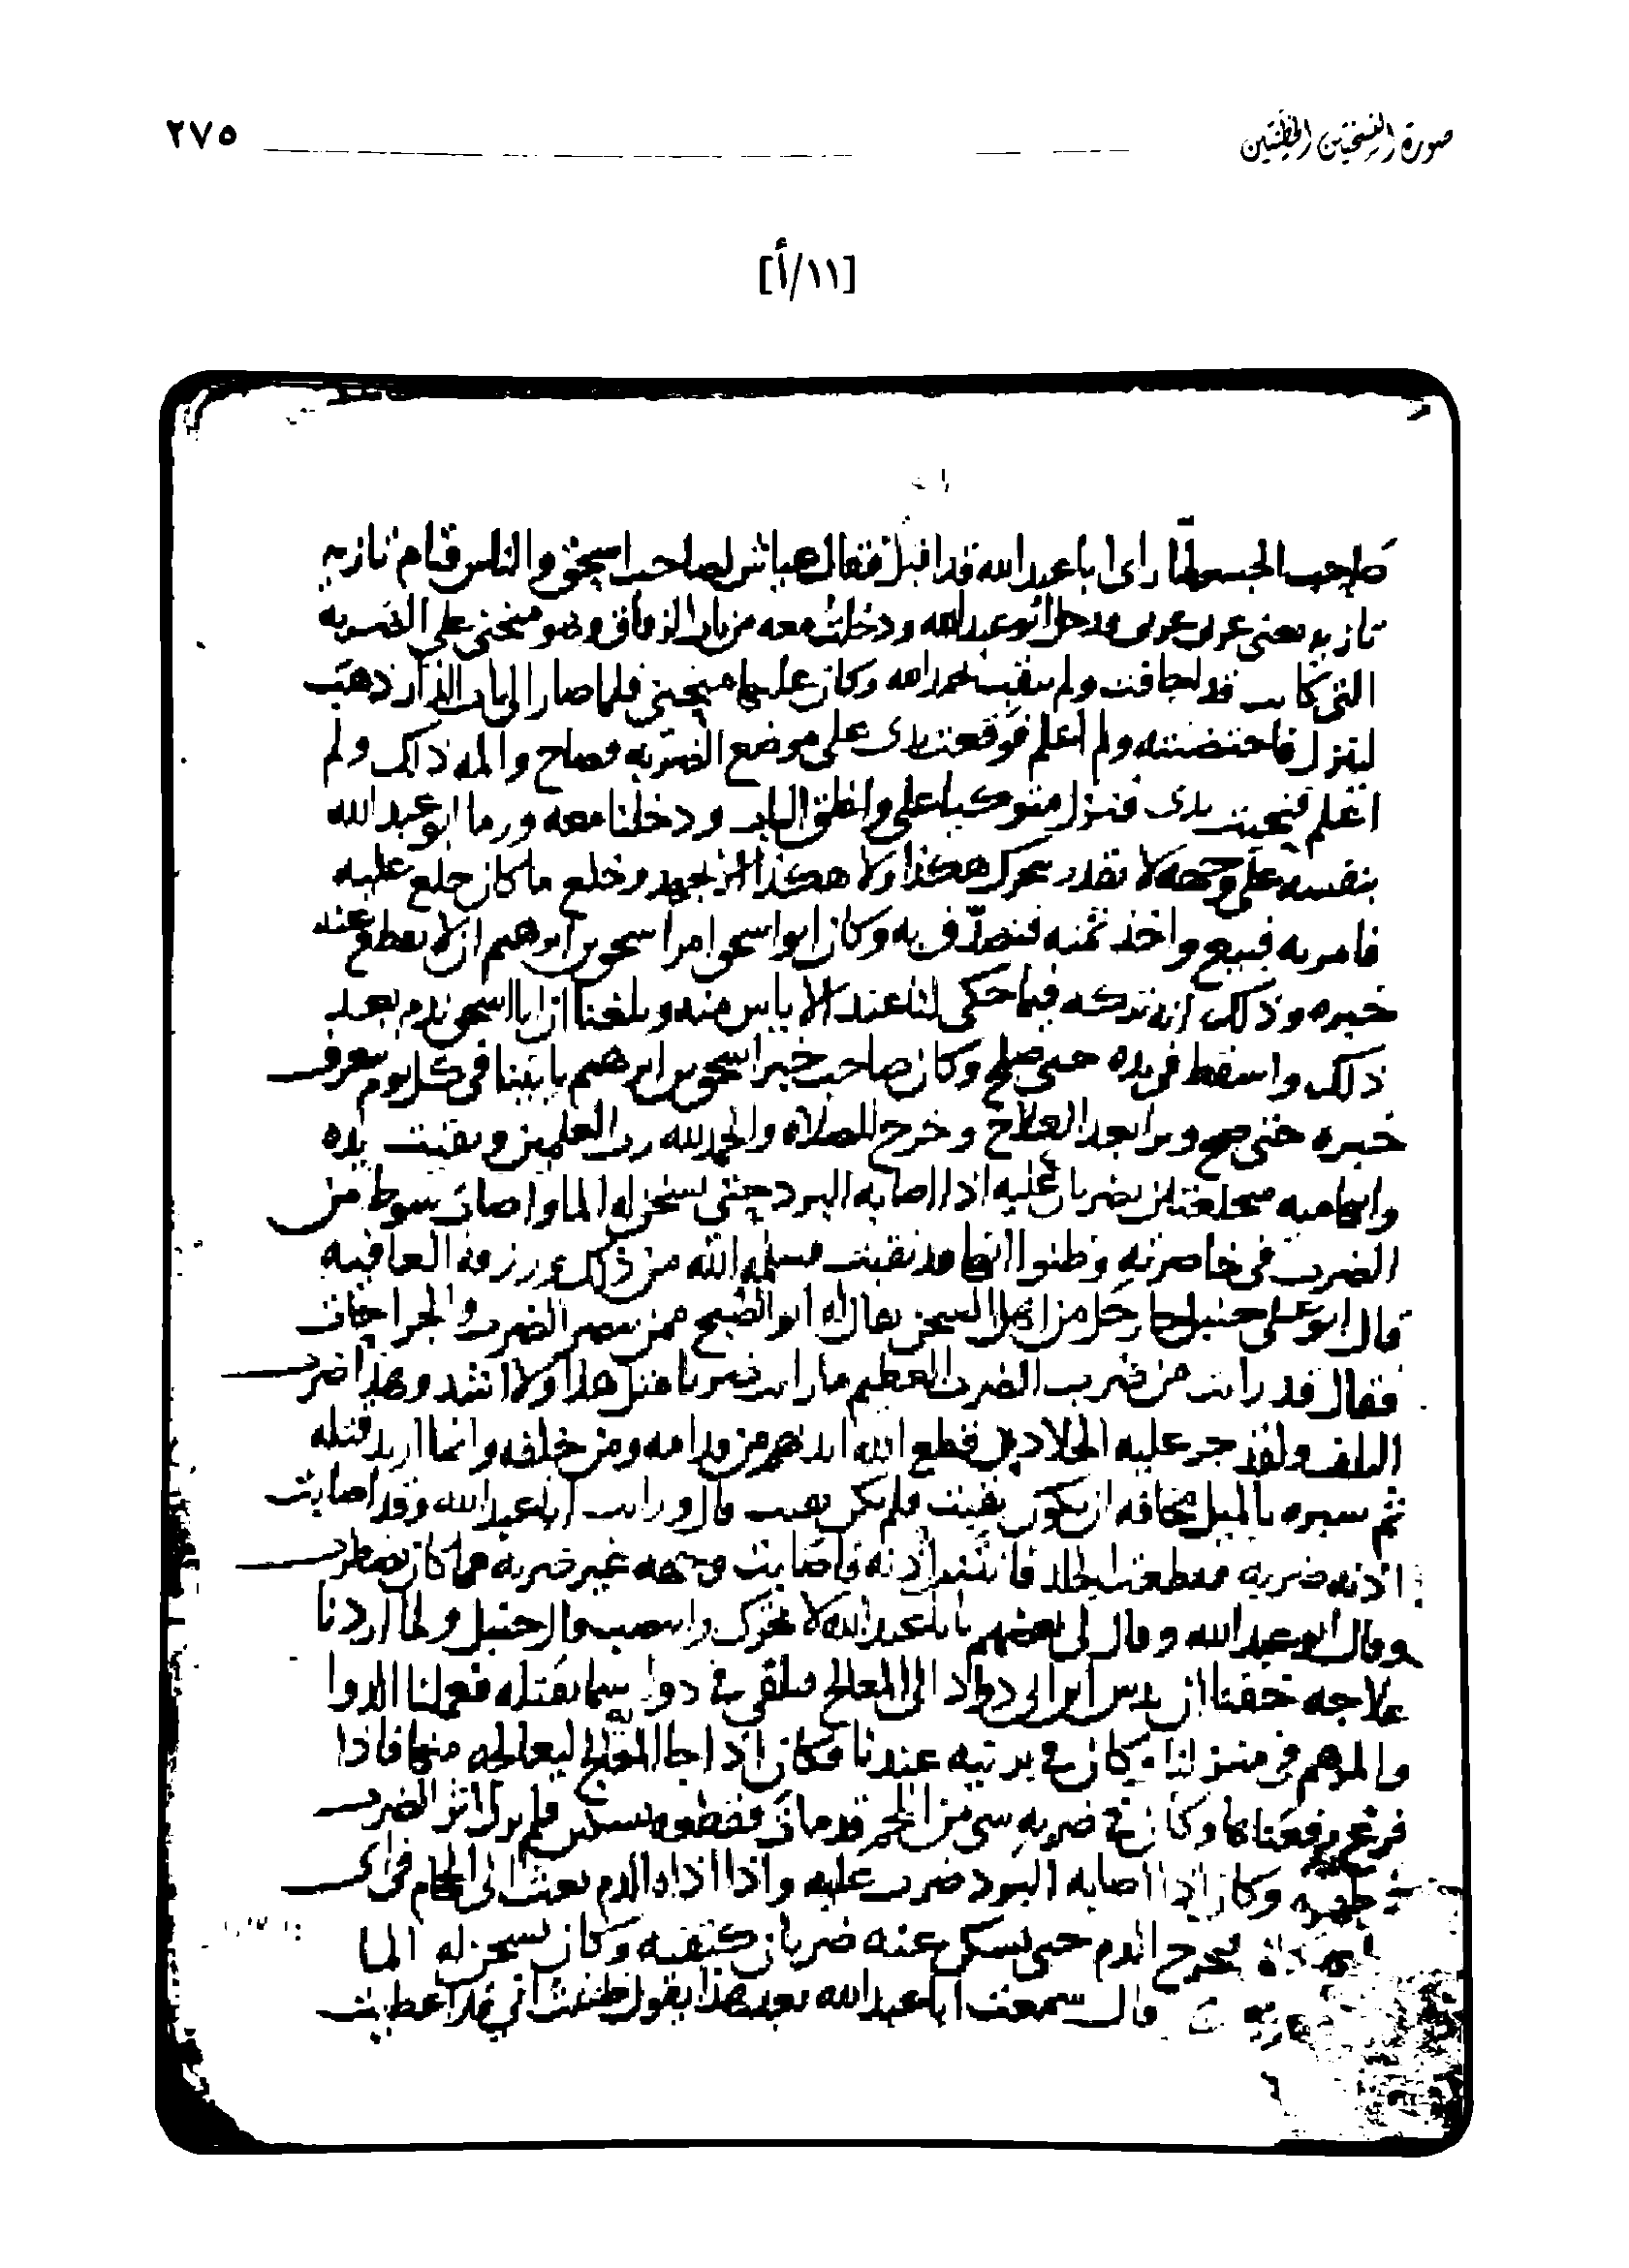 صورة النسختين الخطيتين ٢٧٥
[١١/أ]
صاحب الجسر لما راى ابا عبد الله قد اقبل فقال عباش لصاحب اسحق والناس قيام تازيه
تازيه يعنى عربى عربى ودخل ابو عبد الله ودخلت معه من باب الزقاق وهو منحنى على الضربه
التى كانت قد اجافت ولم تنقب بحمد الله وكان عليها منحنى فلما صار الى باب الدار ذهب
لينزل فاحتضنته ولم اعلم فوقعت يدى على موضع الضربه فصاح والمه ذلك ولم
اعلم فنحيت يدى فنزل متوكيا على واغلق الباب ودخلنا معه ورما ابو عبد الله
بنفسه على وجهه لا يقدر يتحرك هكذا ولا هكذا الا بجهد وخلع ما كان خلع عليه
فامر به فبيع واخذ ثمنه فتصدق به وكان ابو اسحق امر اسحق بن ابرهيم ان لا يقطع عنه
خبره وذلك انه تركه فيما حكى لنا عند الاياس منه وبلغنا ان ابا اسحق ندم بعد
ذلك واسقط فى يده حتى صلح وكان صاحب خبر اسحق بن ابرهيم ياتينا فى كل يوم يتعرف
خبره حتى صح وبرا بعد العلاج وخرج للصلاه والحمد لله رب العلمين وبقيت يده
وابهاميه منخلعتين يضربان عليه اذا اصابه البرد حتى يسخن له الما واصابه سوط من
الضرب فى خاصرته وظنوا انها قد نقبت فسلمه الله من ذلك ورزقه العافيه
قال ابو على حنبل جا رجل من اهل السجن يقال له ابو الصبح ممن يبصر الضرب والجراحات
فقال قد رايت من ضرب الضرب العظيم ما رايت ضربا مثل هذا ولا اشد وهذا ضرب
التلف ولقد جر عليه الجلادين قطع الله ايديهم من قدامه ومن خلفه وانما اريد قتله
ثم سبره بالميل مخافه ان يكون نقبت فلم يكن نقبت قال ورايت ابا عبد الله وقد اصابت
اذنه ضربه فقطعت الجلد فانتثر اذنه واصابت وجهه غير ضربه مما كان يضطرب
وقال ابو عبد الله وقال لى بعضهم يا با عبد الله لا تتحرك وانتصب قال حنبل ولما اردنا
علاجه خفنا ان يدس ابن ابى دواد الى المعالج فيلقى فى دوايه سما يقتله فعملنا الدوا
والمرهم فى منزلنا فكان فى برنيه عندنا فكان اذا جا المعالج ليعالجه منها فاذا
فرغ رفعناها وكان فى ضربه شى من اللحم قد مات فقطعه بسكين فلم يزل اثر الضرب
فى ظهره وكان اذا اصابه البرد ضرب عليه واذا اذاه الدم بعث الى الحجام فى اى
يخرج الدم حتى يسكن عنه ضربان كتفيه وكان يسخن له الما
قال سمعت ابا عبد الله بعد هذا يقول ظننت انى قد اعطيت